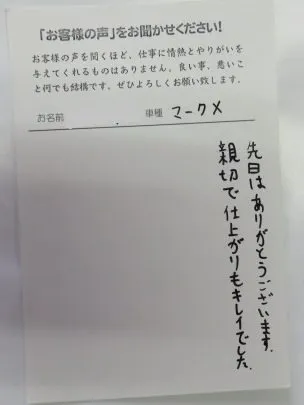 「お客様の声」をお聞かせください!
お客様の声を聞くほど、仕事に情熱とやりがいを
与えてくれるものはありません。良い事、悪いこ
と何でも結構です。ぜひよろしくお願い致します。
お名前 車種 マークX
先日はありがとうございます.
親切で仕上がりもキレイでした.